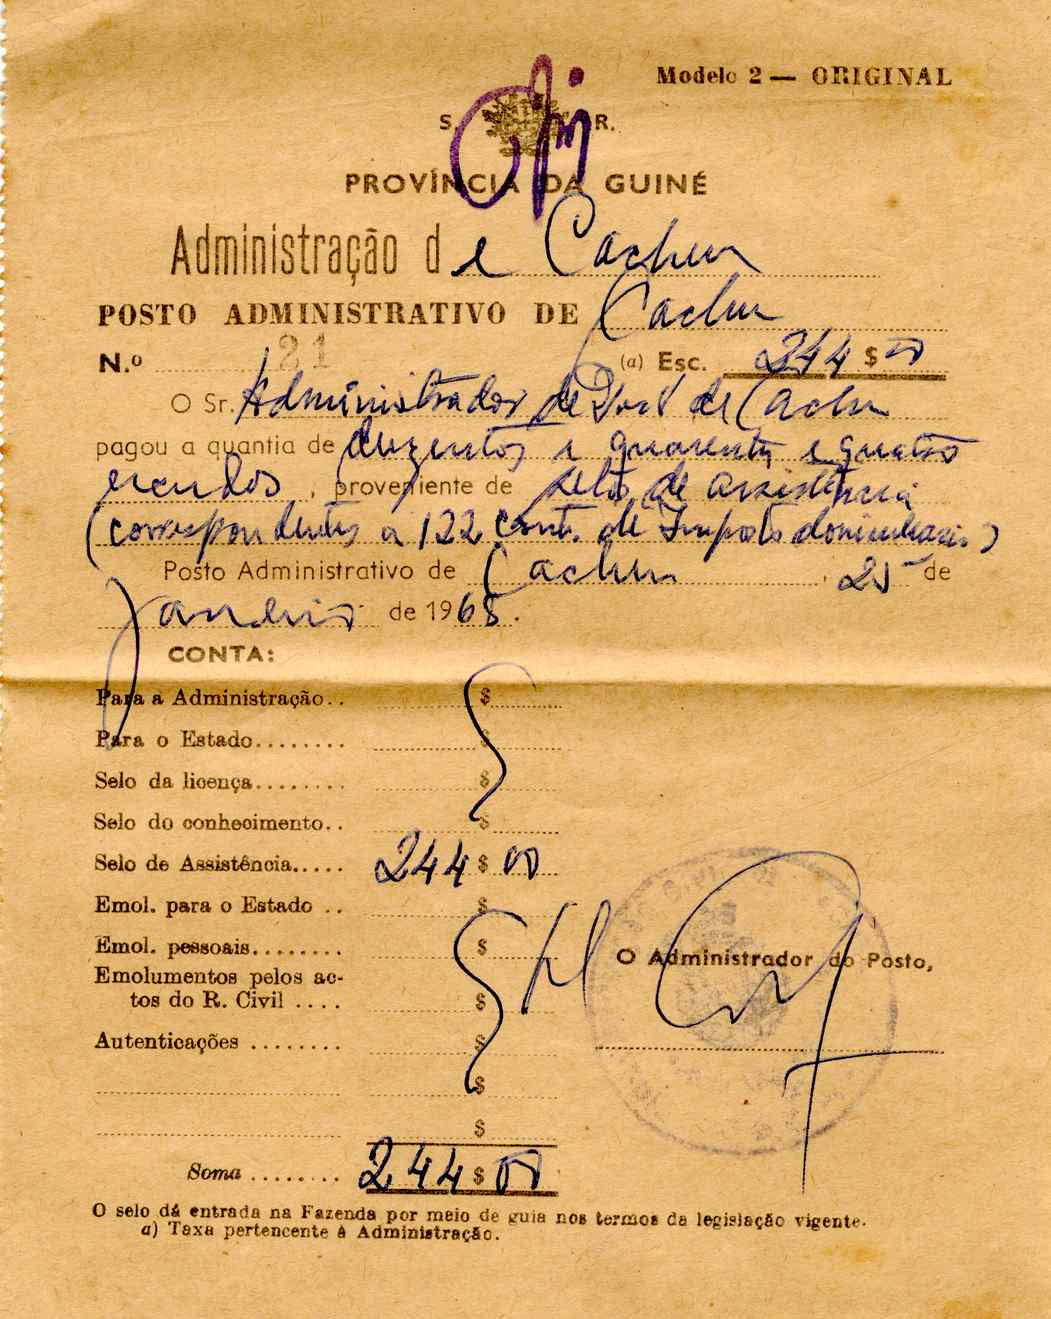 Modelo 2 — ORIGINAL
S. R.
PROVÍNCIA DA GUINÉ
Administração de Cacheu
POSTO ADMINISTRATIVO DE Cacheu
N.º 121 (a) Esc. 244$00
O Sr. Administrador do Posto de Cacheu
pagou a quantia de duzentos e quarenta e quatro
escudos, proveniente de selo de assistência
(correspondentes a 122 cont. de Imposto domiciliário)
Posto Administrativo de Cacheu, 25 de
Janeiro de 1968.
CONTA:
Para a Administração.. $
Para o Estado........ $
Selo da licença........ $
Selo do conhecimento.. $
Selo de Assistência..... 244$00
Emol. para o Estado .. $
Emol. pessoais........ $
Emolumentos pelos ac-
tos do R. Civil .... $
O Administrador do Posto,
Autenticações ........ $
$
$
Soma ........ 244$00
O selo dá entrada na Fazenda por meio de guia nos termos da legislação vigente.
a) Taxa pertencente à Administração.